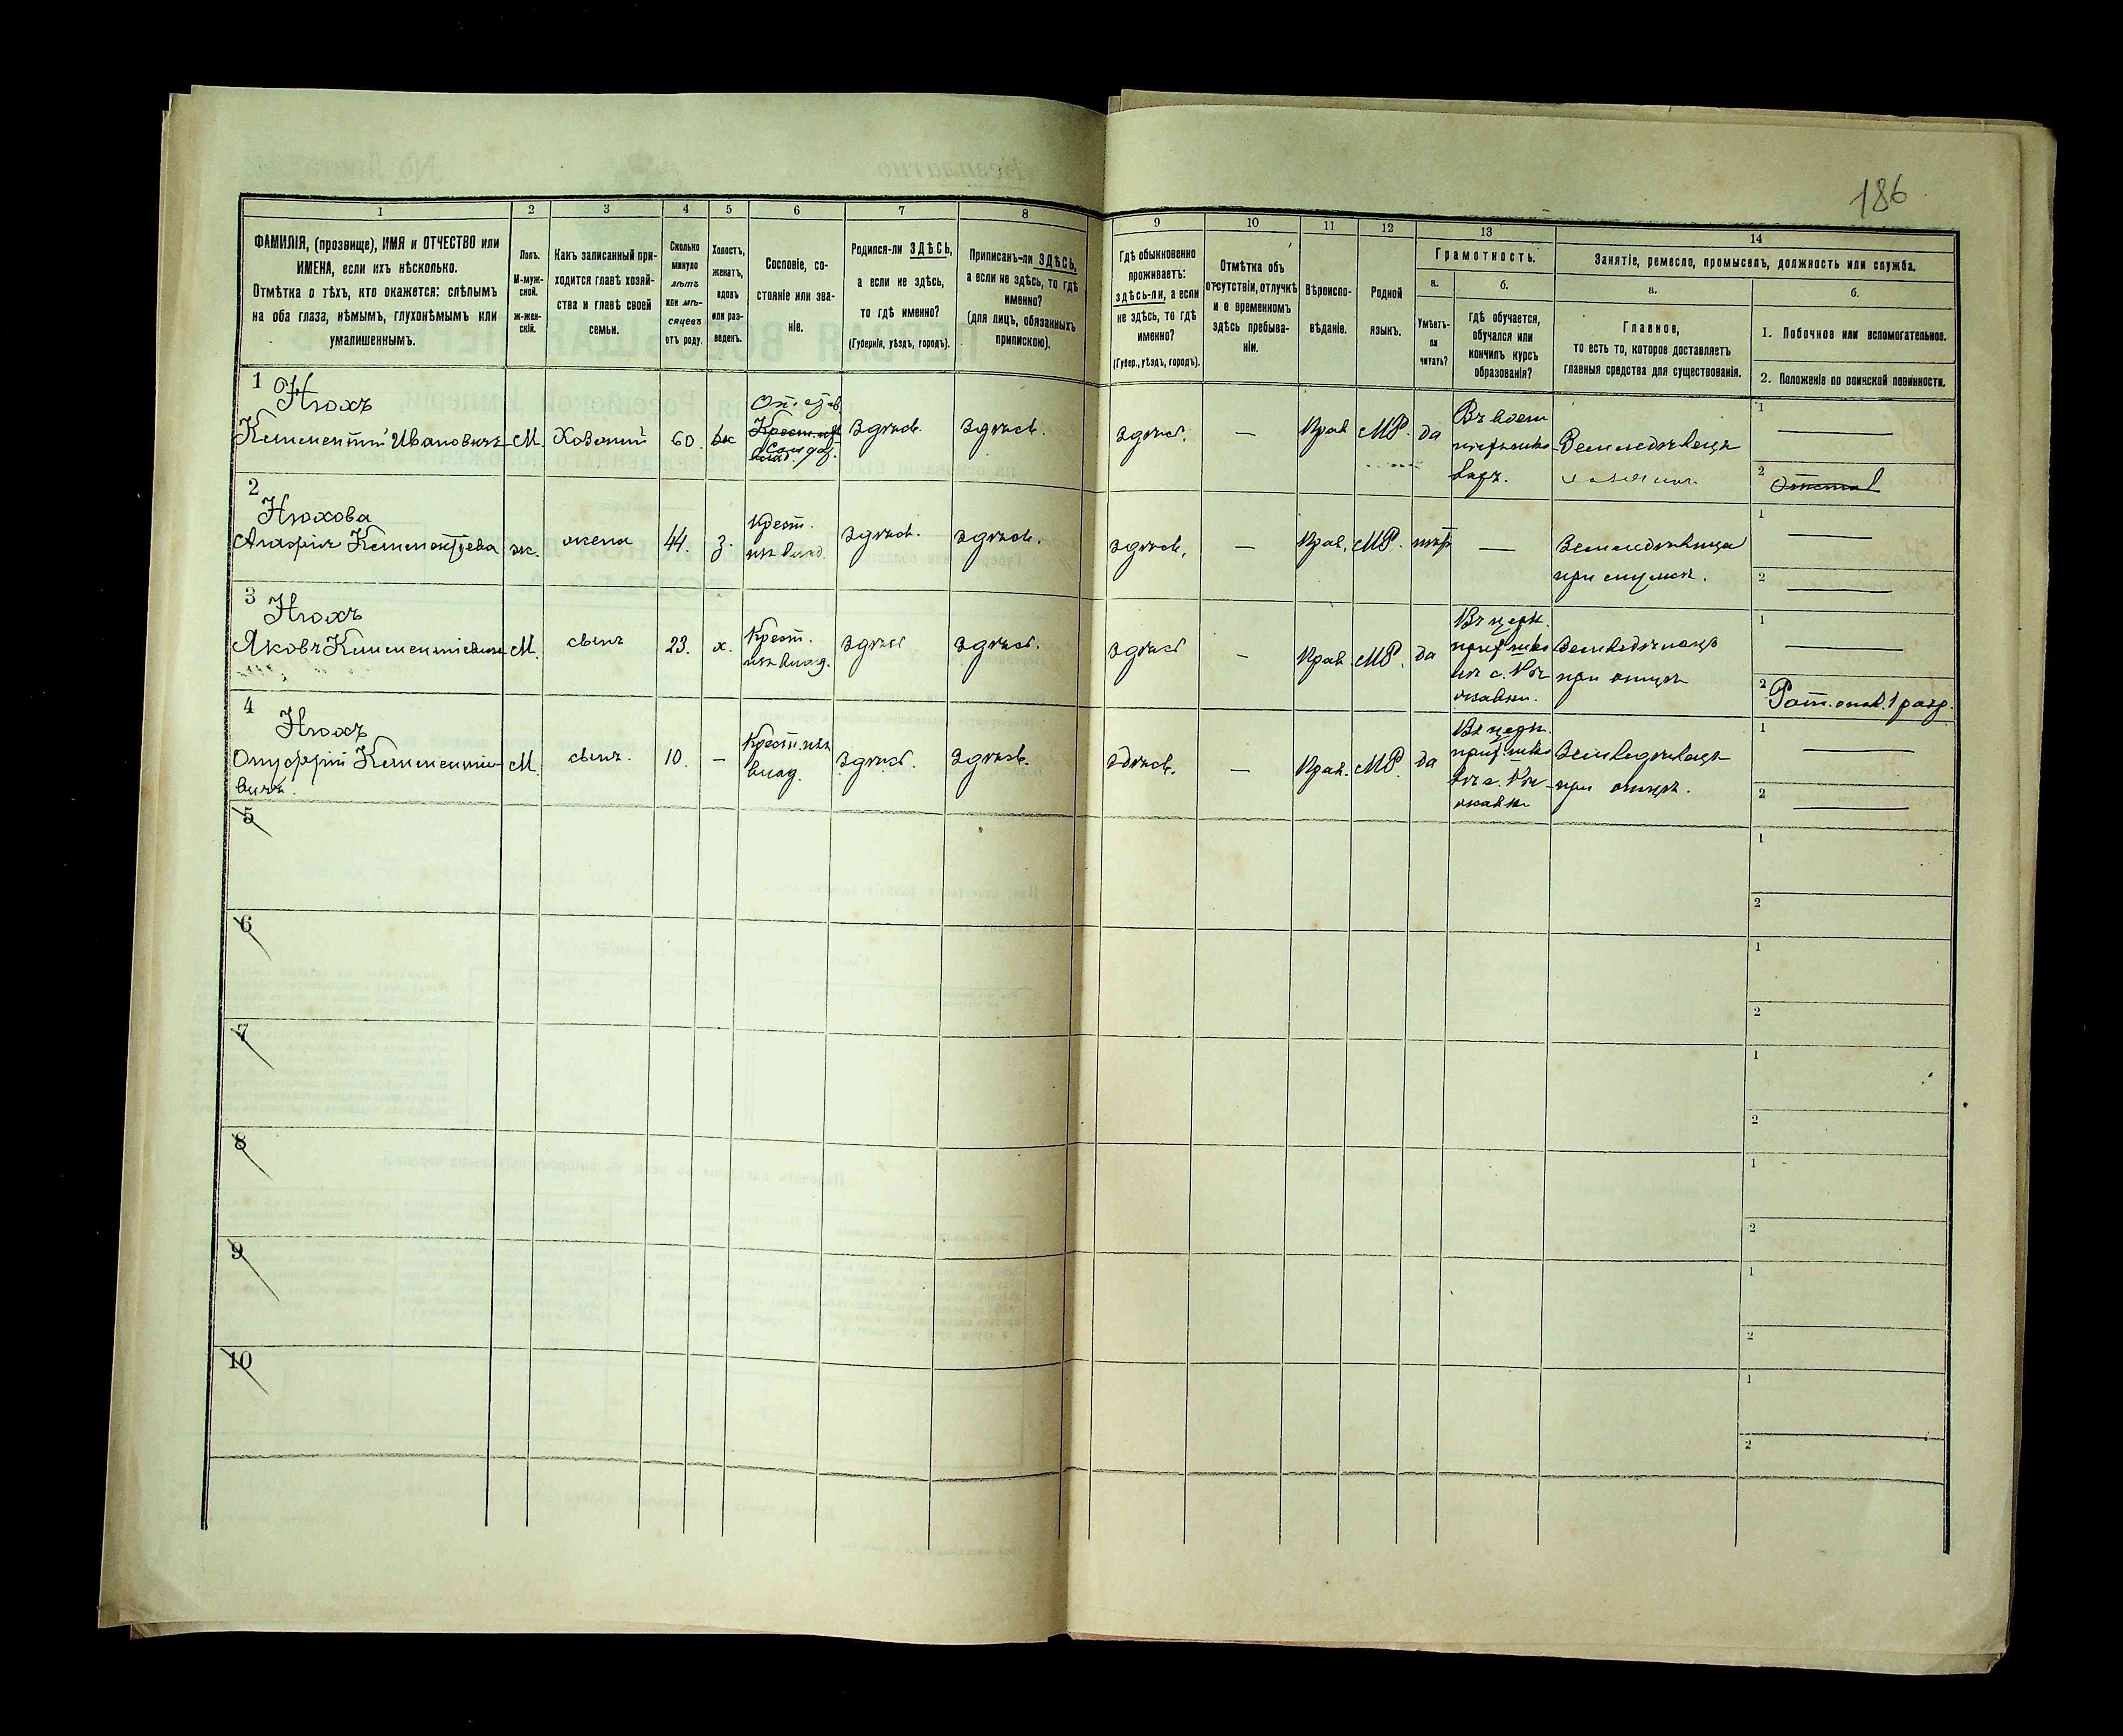 186
1
2
3
4
5
6
7
8
9
10
11
12
13
14
ФАМИЛІЯ, (прозвище), ИМЯ и ОТЧЕСТВО или
ИМЕНА, если ихъ нѣсколько.
Отмѣтка о тѣхъ, кто окажется: слѣпымъ
на оба глаза, нѣмымъ, глухонѣмымъ или
умалишеннымъ.
Полъ.
М-муж-
ской.
ж-жен-
скій.
Какъ записанный при-
ходится главѣ хозяй-
ства и главѣ своей
семьи.
Сколько
минуло
лѣтъ
или мѣ-
сяцевъ
отъ роду.
Холостъ,
женатъ,
вдовъ
или раз-
веденъ.
Сословіе, со-
стояніе или зва-
ніе.
Родился-ли ЗДѢСЬ,
а если не здѣсь,
то гдѣ именно?
(Губернія, уѣздъ, городъ).
Приписанъ-ли ЗДѢСЬ,
а если не здѣсь, то гдѣ
именно?
(для лицъ, обязанныхъ
припискою).
Гдѣ обыкновенно
проживаетъ:
здѣсь-ли, а если
не здѣсь, то гдѣ
именно?
(Губер., уѣздъ, городъ).
Отмѣтка объ
отсутствіи, отлучкѣ
и о временномъ
здѣсь пребыва-
ніи.
Вѣроиспо-
вѣданіе.
Родной
языкъ.
Грамотность.
а.
Умѣетъ-
ли
читать?
б.
гдѣ обучается,
обучался или
кончилъ курсъ
образованія?
Занятіе, ремесло, промыселъ, должность или служба.
а.
Главное,
то есть то, которое доставляетъ
главныя средства для существованія.
б.
1. Побочное или вспомогательное.
2. Положеніе по воинской повинности.
1
Нюхъ
Климентій Ивановичъ
М.
60
Отстав.
Солдат.
здѣсь.
здѣсь.
здѣсь.
—
Прав
МР.
да
Земледѣлецъ
1
2
Отстав
2
Нюхова
ж.
жена
44.
з.
Крест.
изъ влад.
здѣсь.
здѣсь.
здѣсь.
—
Прав.
МР.
нѣт
—
Земледѣлица
при мужѣ.
1
2
3
Нюхъ
Яковъ Климентіевичъ
М.
сынъ
23.
х.
Крест.
изъ влад.
здѣсь
здѣсь.
здѣсь
—
Прав
МР.
да
Въ церк.
Земледѣлецъ
при отцѣ
1
2
Рат. опол. 1 разр.
4
Нюхъ
Онуфрій Климентіе-
вичъ.
М.
сынъ.
10.
—
Крест. изъ
влад.
здѣсь.
здѣсь.
здѣсь.
—
Прав.
МР.
да
Въ церк.
Земледѣлецъ
при отцѣ.
1
2
5
1
2
6
1
2
7
1
2
8
1
2
9
1
2
10
1
2